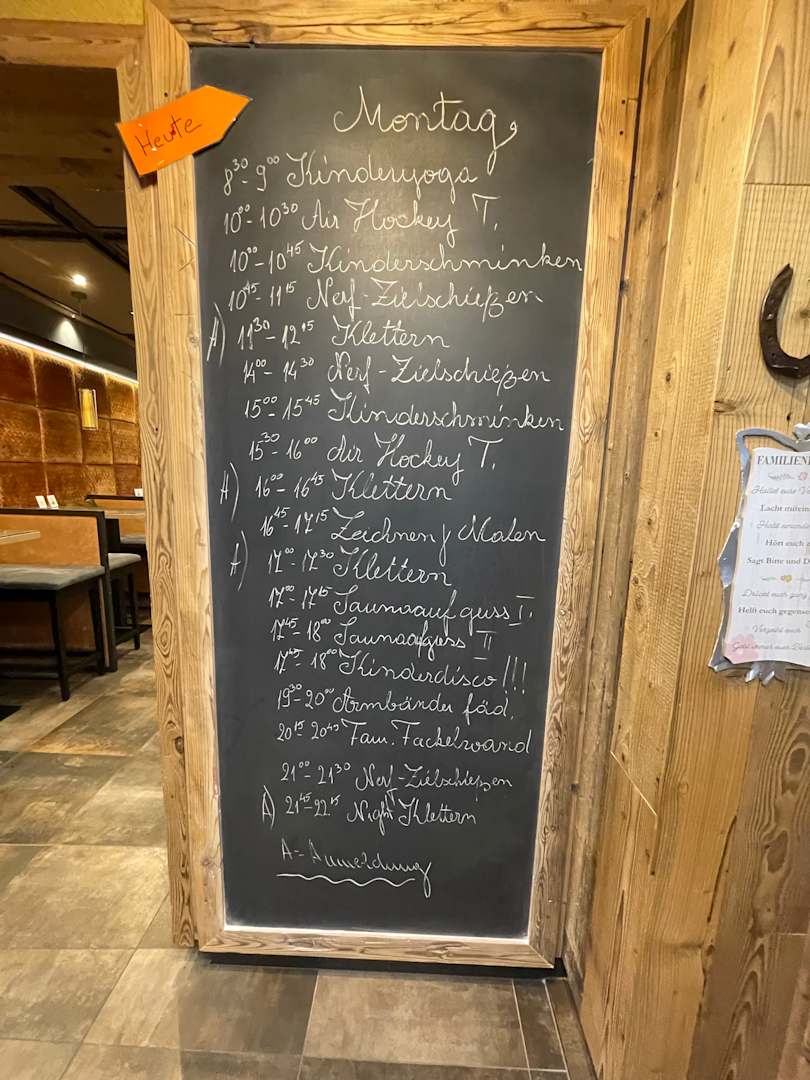 Heute
Montag,
8³⁰- 9⁰⁰ Kinderyoga
10⁰⁰- 10³⁰ Air Hockey T.
10⁰⁰- 10⁴⁵ Kinderschminken
10⁴⁵- 11¹⁵ Nerf-Zielschießen
A) 11³⁰- 12¹⁵ Klettern
14⁰⁰- 14³⁰ Nerf-Zielschießen
15⁰⁰- 15⁴⁵ Kinderschminken
15³⁰- 16⁰⁰ Air Hockey T.
A) 16⁰⁰- 16⁴⁵ Klettern
16⁴⁵- 17¹⁵ Zeichnen / Malen
A) 17⁰⁰- 17³⁰ Klettern
17⁰⁰- 17¹⁵ Saunaaufguss I.
17⁴⁵- 18⁰⁰ Saunaaufguss II
17⁴⁵- 18⁰⁰ Kinderdisco !!!
19³⁰- 20⁰⁰ Armbänder fäd.
20¹⁵- 20⁴⁵ Fam. Fackelwand
21⁰⁰- 21³⁰ Nerf-Zielschießen
A) 21⁴⁵- 22¹⁵ Night Klettern
A- Anmeldung
FAMILIEN
Lacht mitein
Hört euch
Sagt Bitte und D
Drückt euch ganz
Helft euch gegense
Verzeiht euch